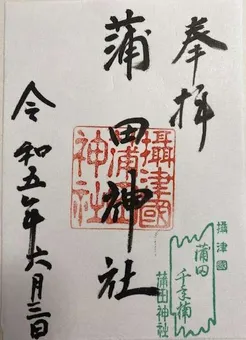 奉拝
攝津國
蒲田
千年楠
蒲田神社
蒲田神社
攝津國
蒲田
神社
令和五年六月三日